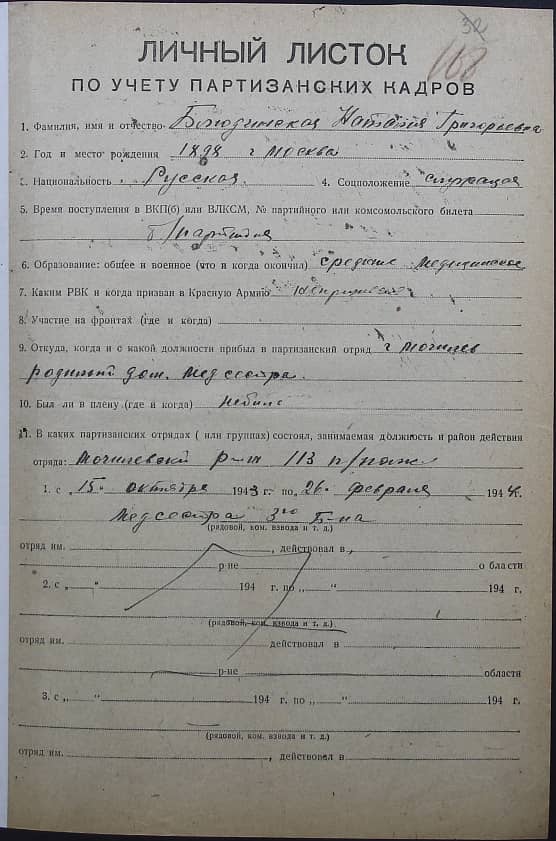 32
168
ЛИЧНЫЙ ЛИСТОК
ПО УЧЕТУ ПАРТИЗАНСКИХ КАДРОВ
1. Фамилия, имя и отчество Наталия Григорьевна
2. Год и место рождения 1898 г Москва
3. Национальность Русская 4. Соцположение служащая
5. Время поступления в ВКП(б) или ВЛКСМ, № партийного или комсомольского билета
б/партийная
6. Образование: общее и военное (что и когда окончил) среднее медицинское
7. Каким РВК и когда призван в Красную Армию
8. Участие на фронтах (где и когда)
9. Откуда, когда и с какой должности прибыл в партизанский отряд г Могилев
родильный дом. Медсестра.
10. Был ли в плену (где и когда) небыла
11. В каких партизанских отрядах (или группах) состоял, занимаемая должность и район действия
отряда: Могилевский р-н 113 п/полк
1. с „15" октября 1943 г. по „26" февраля 1944 г.
Медсестра 3го Б-на
(рядовой, ком. взвода и т. д.)
отряд им. , действовал в
р-не области
2. с „ " 194 г. по „ " 194 г.
(рядовой, ком. взвода и т. д.)
отряд им. действовал в
р-не области
3. с „ " 194 г. по „ " 194 г.
(рядовой, ком. взвода и т. д.)
отряд им. , действовал в